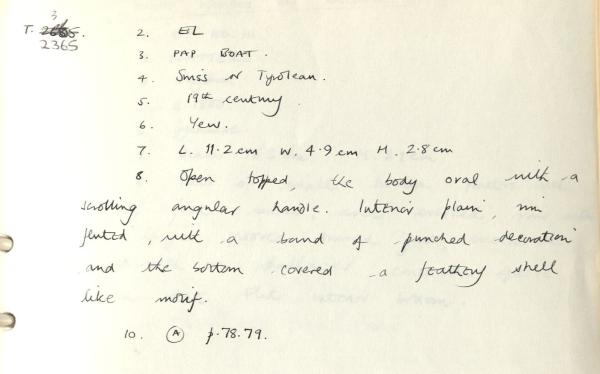 T. 2365
2. EL
3. PAP BOAT.
4. Swiss or Tyrolean.
5. 19th century.
6. Yew.
7. L. 11.2 cm W. 4.9 cm H. 2.8 cm
8. Open topped, the body oval with a
scrolling angular handle. Interior plain, rim
fluted, with a band of punched decoration
and the bottom covered a feathery shell
like motif.
10. A p.78.79.